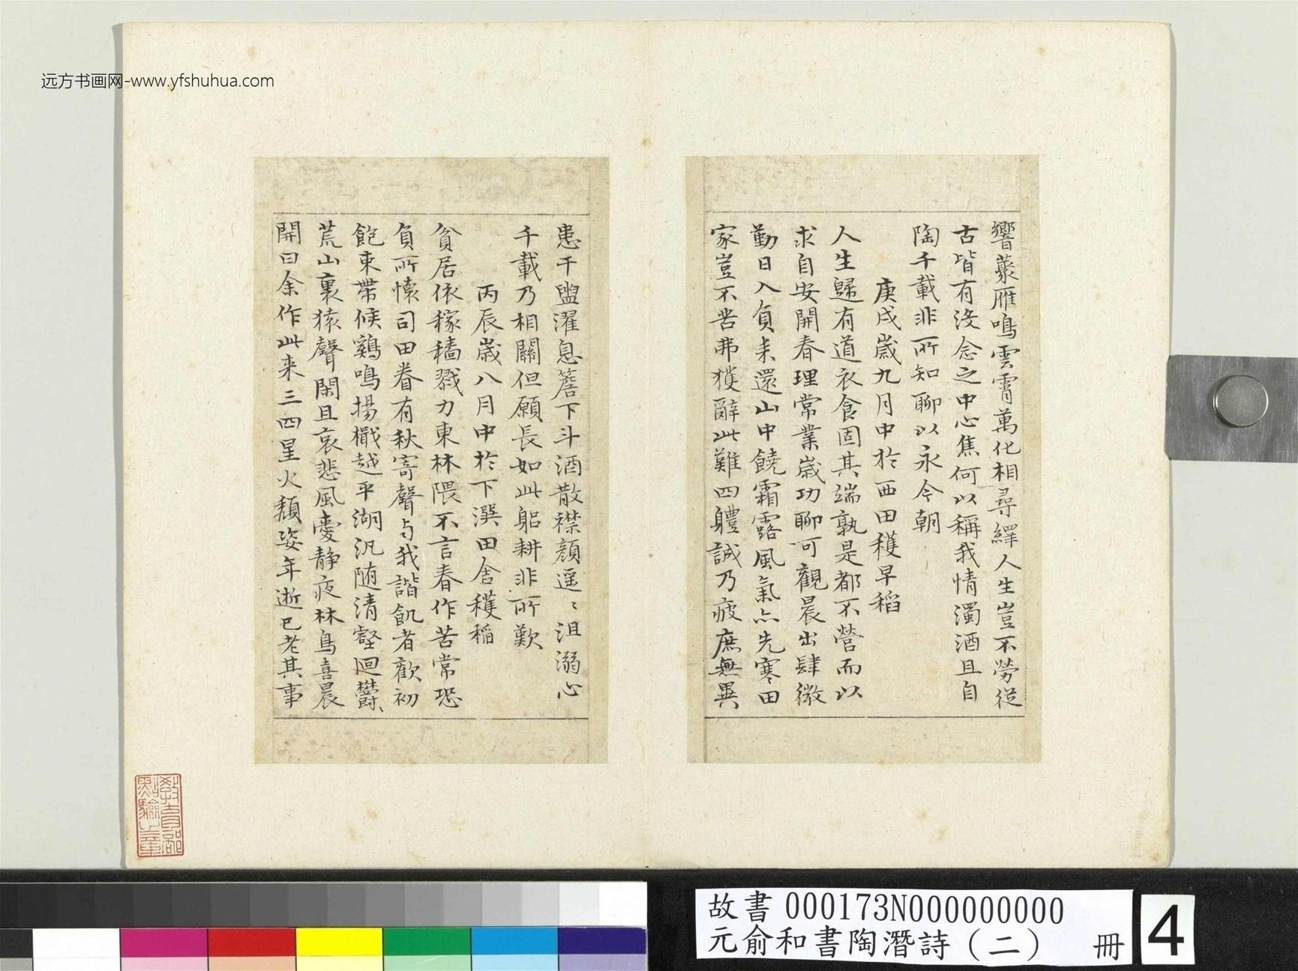 远方书画网-www.yfshuhua.com
響藂雁鳴雲霄萬化相尋繹人生豈不勞從
古皆有沒念之中心焦何以稱我情濁酒且自
陶千載非所知聊以永今朝
庚戌歲九月中於西田穫早稻
人生歸有道衣食固其端孰是都不營而以
求自安開春理常業歲功聊可觀晨出肆微
勤日入負耒還山中饒霜露風氣亦先寒田
家豈不苦弗獲辭此難四軆誠乃疲庶無異
患干盥濯息簷下斗酒散襟顏遥〻沮溺心
千載乃相關但願長如此躬耕非所歎
丙辰歲八月中於下潠田舍穫稲
貧居依稼穡戮力東林隈不言春作苦常恐
負所懷司田眷有秋寄聲与我諧飢者歡初
飽束帶候鷄鳴揚檝越平湖汎随清壑迴欝〻
荒山裏猿聲閑且哀悲風愛静夜林鳥喜晨
開曰余作此来三四星火頽姿年逝已老其事
教育部點驗之章
故書000173N000000000
元俞和書陶潛詩（二） 冊
4